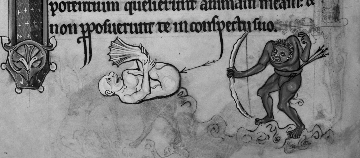 potentium quesierunt animam meam: &
non pposuerunt te in conspectu suo.